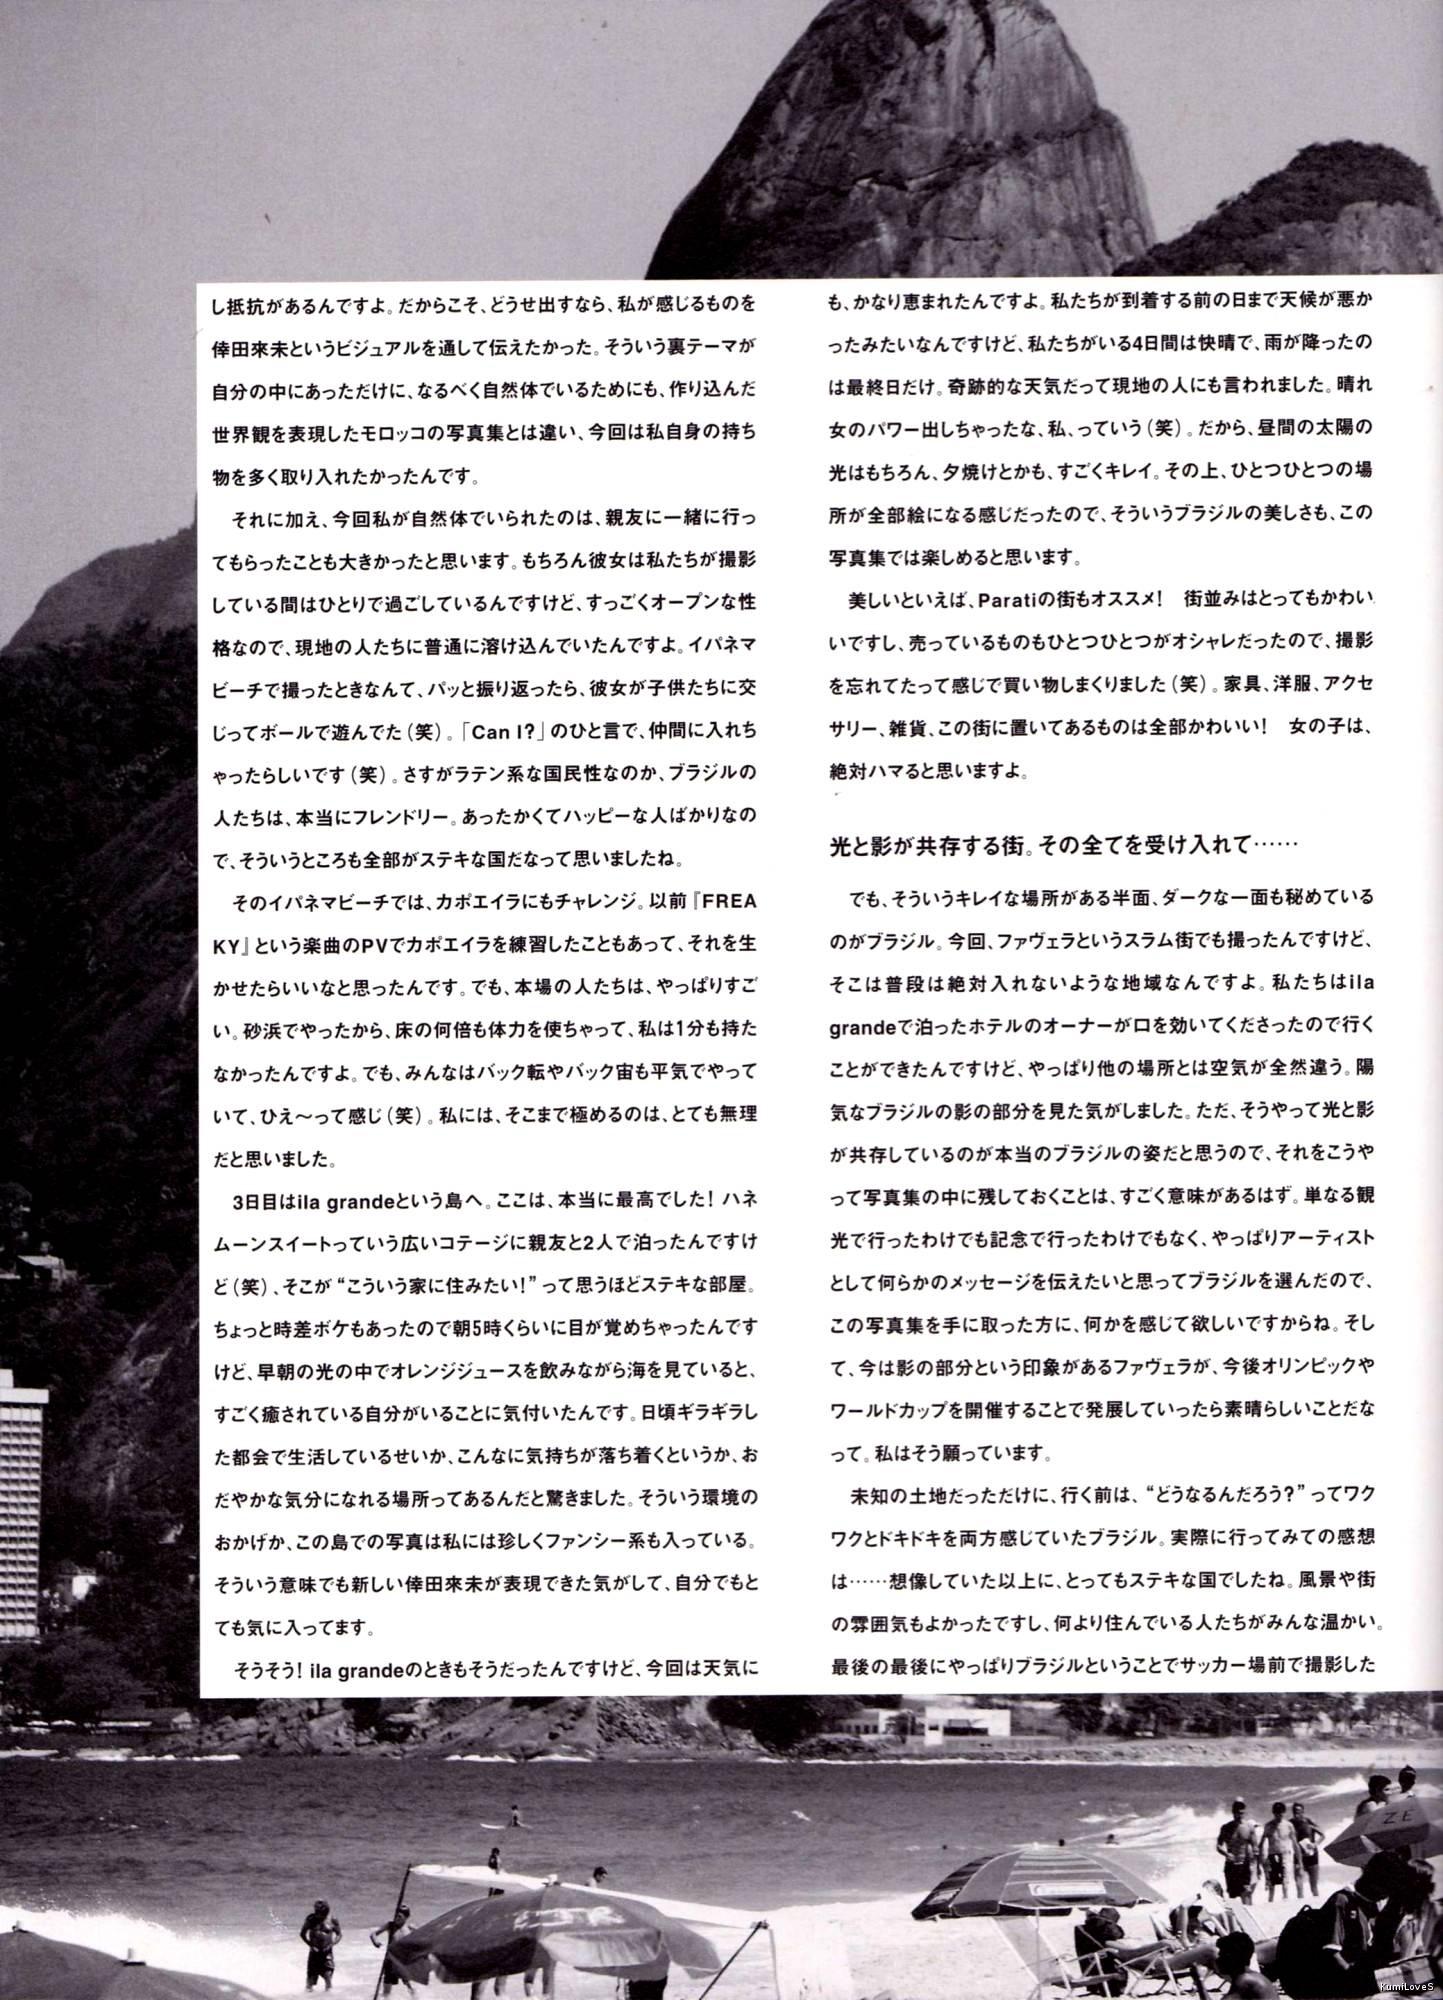 し抵抗があるんですよ。だからこそ、どうせ出すなら、私が感じるものを
倖田來未というビジュアルを通して伝えたかった。そういう裏テーマが
自分の中にあっただけに、なるべく自然体でいるためにも、作り込んだ
世界観を表現したモロッコの写真集とは違い、今回は私自身の持ち
物を多く取り入れたかったんです。
それに加え、今回私が自然体でいられたのは、親友に一緒に行っ
てもらったことも大きかったと思います。もちろん彼女は私たちが撮影
している間はひとりで過ごしているんですけど、すっごくオープンな性
格なので、現地の人たちに普通に溶け込んでいたんですよ。イパネマ
ビーチで撮ったときなんて、パッと振り返ったら、彼女が子供たちに交
じってボールで遊んでた（笑）。「Can I?」のひと言で、仲間に入れち
ゃったらしいです（笑）。さすがラテン系な国民性なのか、ブラジルの
人たちは、本当にフレンドリー。あったかくてハッピーな人ばかりなの
で、そういうところも全部がステキな国だなって思いましたね。
そのイパネマビーチでは、カポエイラにもチャレンジ。以前『FREA
KY』という楽曲のPVでカポエイラを練習したこともあって、それを生
かせたらいいなと思ったんです。でも、本場の人たちは、やっぱりすご
い。砂浜でやったから、床の何倍も体力を使ちゃって、私は1分も持た
なかったんですよ。でも、みんなはバック転やバック宙も平気でやって
いて、ひえ〜って感じ（笑）。私には、そこまで極めるのは、とても無理
だと思いました。
3日目はila grandeという島へ。ここは、本当に最高でした！ ハネ
ムーンスイートっていう広いコテージに親友と2人で泊ったんですけ
ど（笑）、そこが“こういう家に住みたい！”って思うほどステキな部屋。
ちょっと時差ボケもあったので朝5時くらいに目が覚めちゃったんです
けど、早朝の光の中でオレンジジュースを飲みながら海を見ていると、
すごく癒されている自分がいることに気付いたんです。日頃ギラギラし
た都会で生活しているせいか、こんなに気持ちが落ち着くというか、お
だやかな気分になれる場所ってあるんだと驚きました。そういう環境の
おかげか、この島での写真は私には珍しくファンシー系も入っている。
そういう意味でも新しい倖田來未が表現できた気がして、自分でもと
ても気に入ってます。
そうそう！ ila grandeのときもそうだったんですけど、今回は天気に
も、かなり恵まれたんですよ。私たちが到着する前の日まで天候が悪か
ったみたいなんですけど、私たちがいる4日間は快晴で、雨が降ったの
は最終日だけ。奇跡的な天気だって現地の人にも言われました。晴れ
女のパワー出しちゃったな、私、っていう（笑）。だから、昼間の太陽の
光はもちろん、夕焼けとかも、すごくキレイ。その上、ひとつひとつの場
所が全部絵になる感じだったので、そういうブラジルの美しさも、この
写真集では楽しめると思います。
美しいといえば、Paratiの街もオススメ！　街並みはとってもかわい
いですし、売っているものもひとつひとつがオシャレだったので、撮影
を忘れてたって感じで買い物しまくりました（笑）。家具、洋服、アクセ
サリー、雑貨、この街に置いてあるものは全部かわいい！　女の子は、
絶対ハマると思いますよ。
光と影が共存する街。その全てを受け入れて……
でも、そういうキレイな場所がある半面、ダークな一面も秘めている
のがブラジル。今回、ファヴェラというスラム街でも撮ったんですけど、
そこは普段は絶対入れないような地域なんですよ。私たちはila
grandeで泊ったホテルのオーナーが口を効いてくださったので行く
ことができたんですけど、やっぱり他の場所とは空気が全然違う。陽
気なブラジルの影の部分を見た気がしました。ただ、そうやって光と影
が共存しているのが本当のブラジルの姿だと思うので、それをこうや
って写真集の中に残しておくことは、すごく意味があるはず。単なる観
光で行ったわけでも記念で行ったわけでもなく、やっぱりアーティスト
として何らかのメッセージを伝えたいと思ってブラジルを選んだので、
この写真集を手に取った方に、何かを感じて欲しいですからね。そし
て、今は影の部分という印象があるファヴェラが、今後オリンピックや
ワールドカップを開催することで発展していったら素晴らしいことだな
って。私はそう願っています。
未知の土地だっただけに、行く前は、“どうなるんだろう？”ってワク
ワクとドキドキを両方感じていたブラジル。実際に行ってみての感想
は……想像していた以上に、とってもステキな国でしたね。風景や街
の雰囲気もよかったですし、何より住んでいる人たちがみんな温かい。
最後の最後にやっぱりブラジルということでサッカー場前で撮影した
ZE
KumiLoveS